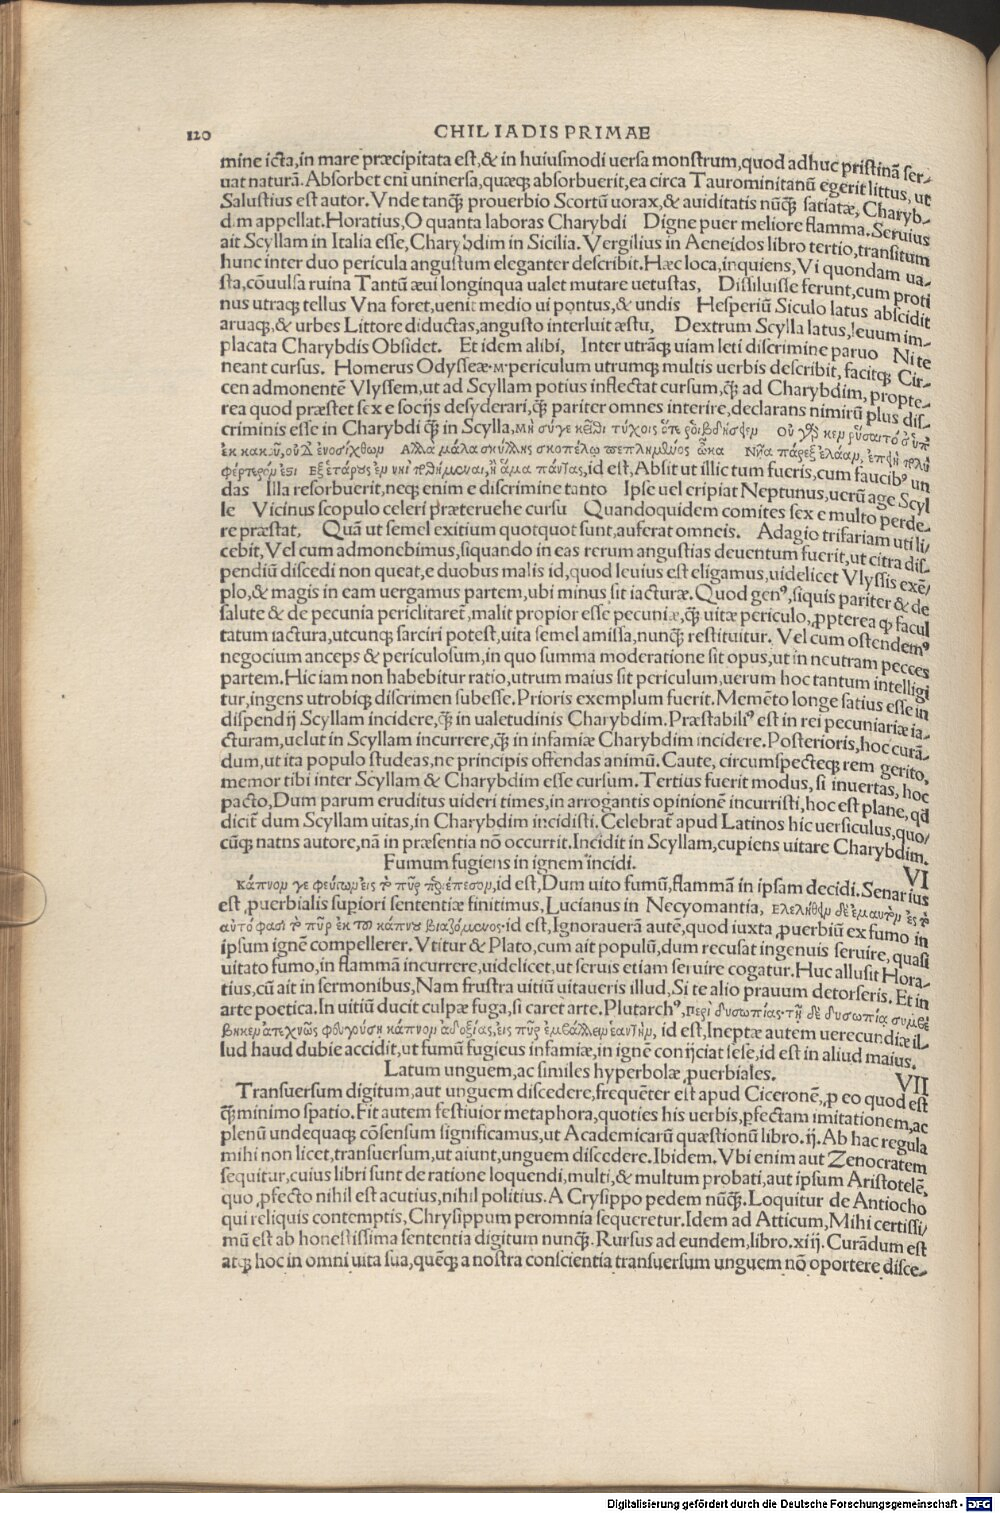 120 CHILIADIS PRIMAE
mine icta,in mare præcipitata est,& in huiusmodi uersa monstrum,quod adhuc pristinã ser-
uat naturã.Absorbet eni uninersa,quæq; absorbuerit,ea circa Taurominitanũ egerit littus, ut
Salustius est autor.Vnde tanq̃; prouerbio Scortũ uorax,& auiditatis nũq̃; satiatæ, Charyb-
dim appellat.Horatius,O quanta laboras Charybdi Digne puer meliore flamma.Seruius
ait Scyllam in Italia esse,Charybdim in Sicilia.Vergilius in Aeneidos libro tertio,transitum
hunc inter duo pericula angustum eleganter describit.Hæc loca,inquiens,Vi quondam ua-
sta,cõuulsa ruina Tantũ æui longinqua ualet mutare uetustas, Dissiluisse ferunt,cum proti
nus utraq; tellus Vna foret,uenit medio ui pontus,& undis Hesperiũ Siculo latus abscidit
aruaq;,& urbes Littore diductas,angusto interluit æstu, Dextrum Scylla latus,leuum im-
placata Charybdis Obsidet. Et idem alibi, Inter utrãq; uiam leti discrimine paruo Ni te
neant cursus. Homerus Odysseæ.μ.periculum utrumq; multis uerbis describit, facitq; Cir-
cen admonentẽ Vlyssem,ut ad Scyllam potius inflectat cursum,q̃; ad Charybdim, propte-
rea quod præstet sex e socijs desyderari,q̃; pariter omnes interire,declarans nimirũ plus dis-
criminis esse in Charybdi q̃; in Scylla,μὴ σύγε κεῖθι τύχοις ὅτε ῥοιβδήσειεν Οὐ γάρ κεν ῥύσαιτό σ' ὑπ'
ἐκ κακοῦ,οὐδ' ἐνοσίχθων Ἀλλὰ μάλα σκύλλης σκοπέλῳ πεπλημένος ὦκα Νῆα πάρεξ ἐλάαν, ἐπειὴ πολὺ
φέρτερόν ἐστι Ἓξ ἑτάρους ἐν νηὶ ποθήμεναι,ἢ ἅμα πάντας,id est,Absit ut illic tum fueris,cum faucibꝰ un
das Illa resorbuerit,neq; enim e discrimine tanto Ipse uel eripiat Neptunus,uerũ age Scyl
le Vicinus scopulo celeri præteruehe cursu Quandoquidem comites sex e multo perde-
re præstat, Quã ut semel exitium quotquot sunt,auferat omneis. Adagio trifariam uti li/
cebit,Vel cum admonebimus,siquando in eas rerum angustias deuentum fuerit,ut citra dis-
pendiũ discedi non queat,e duobus malis id,quod leuius est eligamus,uidelicet Vlyssis exẽ/
plo,& magis in eam uergamus partem,ubi minus sit iacturæ.Quod genꝰ,siquis pariter & de
salute & de pecunia periclitaret,malit propior esse pecuniæ,q̃; uitæ periculo,,ppterea q̃ facul
tatum iactura,utcunq; sarciri potest,uita semel amissa,nunq̃; restituitur. Vel cum ostendemꝰ
negocium anceps & periculosum,in quo summa moderatione sit opus,ut in neutram pecces
partem.Hic iam non habebitur ratio,utrum maius sit periculum,uerum hoc tantum intelligi
tur,ingens utrobiq; discrimen subesse.Prioris exemplum fuerit.Memẽto longe satius esse in
dispendij Scyllam incidere,q̃; in ualetudinis Charybdim.Præstabiliꝰ est in rei pecuniariæ ia-
cturam,uelut in Scyllam incurrere,q̃; in infamiæ Charybdim incidere.Posterioris,hoc curã-
dum,ut ita populo studeas,ne principis offendas animũ.Caute, circumspecteq; rem gerito,
memor tibi inter Scyllam & Charybdim esse cursum.Tertius fuerit modus,si inuertas, hoc
pacto,Dum parum eruditus uideri times,in arrogantis opinionẽ incurristi,hoc est plane,qd
dicit dum Scyllam uitas,in Charybdim incidisti.Celebrat apud Latinos hic uersiculus,quo/
cũq; natns autore,nã in præsentia nõ occurrit.Incidit in Scyllam,cupiens uitare Charybdim.
Fumum fugiens in ignem incidi. VI
Κάπνον γε φεύγων εἰς τὸ πῦρ περιέπεσον,id est,Dum uito fumũ,flammã in ipsam decidi.Senarius
est ,puerbialis supiori sententiæ finitimus, Lucianus in Necyomantia, Ἐλελήθειν δὲ ἐμαυτὸν ἐς τὸ
αὐτό φασι τὸ πῦρ ἐκ τοῦ κάπνου βιαζόμενος.id est,Ignorauerã autẽ,quod iuxta ,puerbiũ ex fumo in
ipsum ignẽ compellerer.Vtitur & Plato,cum ait populũ,dum recusat ingenuis seruire,quasi
uitato fumo,in flammã incurrere,uidelicet,ut seruis etiam seruire cogatur.Huc allusit Hora-
tius,cũ ait in sermonibus,Nam frustra uitiũ uitaueris illud,Si te alio prauum detorseris.Et in
arte poetica.In uitiũ ducit culpæ fuga,si caret arte.Plutarchꝰ,περὶ δυσωπίας.τῇ δὲ δυσωπίᾳ συμβέ
βηκεν ἀτεχνῶς φευγούσῃ κάπνον ἀδοξίας,εἰς πῦρ ἐμβάλλειν ἑαυτήν, id est,Ineptæ autem uerecundiæ il-
lud haud dubie accidit,ut fumũ fugieus infamiæ,in ignẽ conijciat sese,id est in aliud maius.
Latum unguem,ac similes hyperbolæ ,puerbiales. VII
Transuersum digitum,aut unguem discedere,frequẽter est apud Ciceronẽ,,p eo quod est
q̃; minimo spatio.Fit autem festiuior metaphora,quoties his uerbis,pfectam imitationem,ac
plenũ undequaq; cõsensum significamus,ut Academicarũ quæstionũ libro.ij.Ab hac regula
mihi non licet,transuersum,ut aiunt,unguem discedere.Ibidem.Vbi enim aut Zenocratem
sequitur,cuius libri sunt de ratione loquendi,multi,& multum probati,aut ipsum Aristotelẽ,
quo ,pfecto nihil est acutius,nihil politius.A Crysippo pedem nũq̃;.Loquitur de Antiocho
qui reliquis contemptis,Chrysippum peromnia sequeretur.Idem ad Atticum,Mihi certissi/
mũ est ab honestissima sententia digitum nunq̃;.Rursus ad eundem,libro.xiij.Curãdum est
atq; hoc in omni uita sua,quẽq; a nostra conscientia transuersum unguem nõ oportere disce-
Digitalisierung gefördert durch die Deutsche Forschungsgemeinschaft - DFG